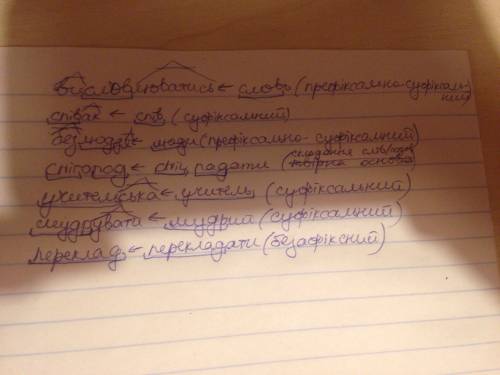 висловлюватись ← слово (префіксально-суфіксаль-
ний)
співак ← спів (суфіксальний)
безлюддя ← люди (префіксально-суфіксальний)
← падати (складання слів/
основа)
учителька ← учитель (суфіксальний)
мудрувати ← мудрий (суфіксальний)
переклад ← перекладати (безафіксний)